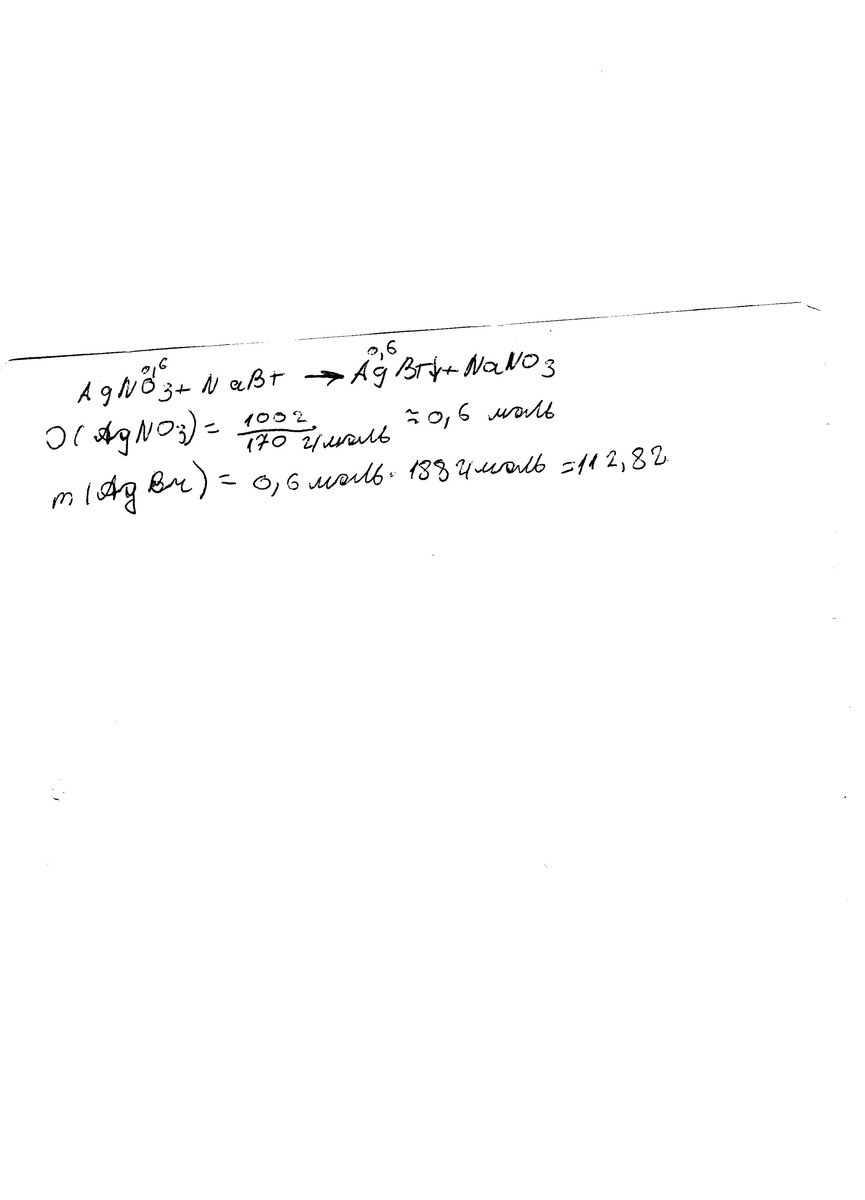 0,6 0,6
AgNO3 + NaBr → AgBr↓ + NaNO3
ν(AgNO3) = 100г / 170 г/моль ≈ 0,6 моль
m(AgBr) = 0,6 моль · 188 г/моль = 112,8г